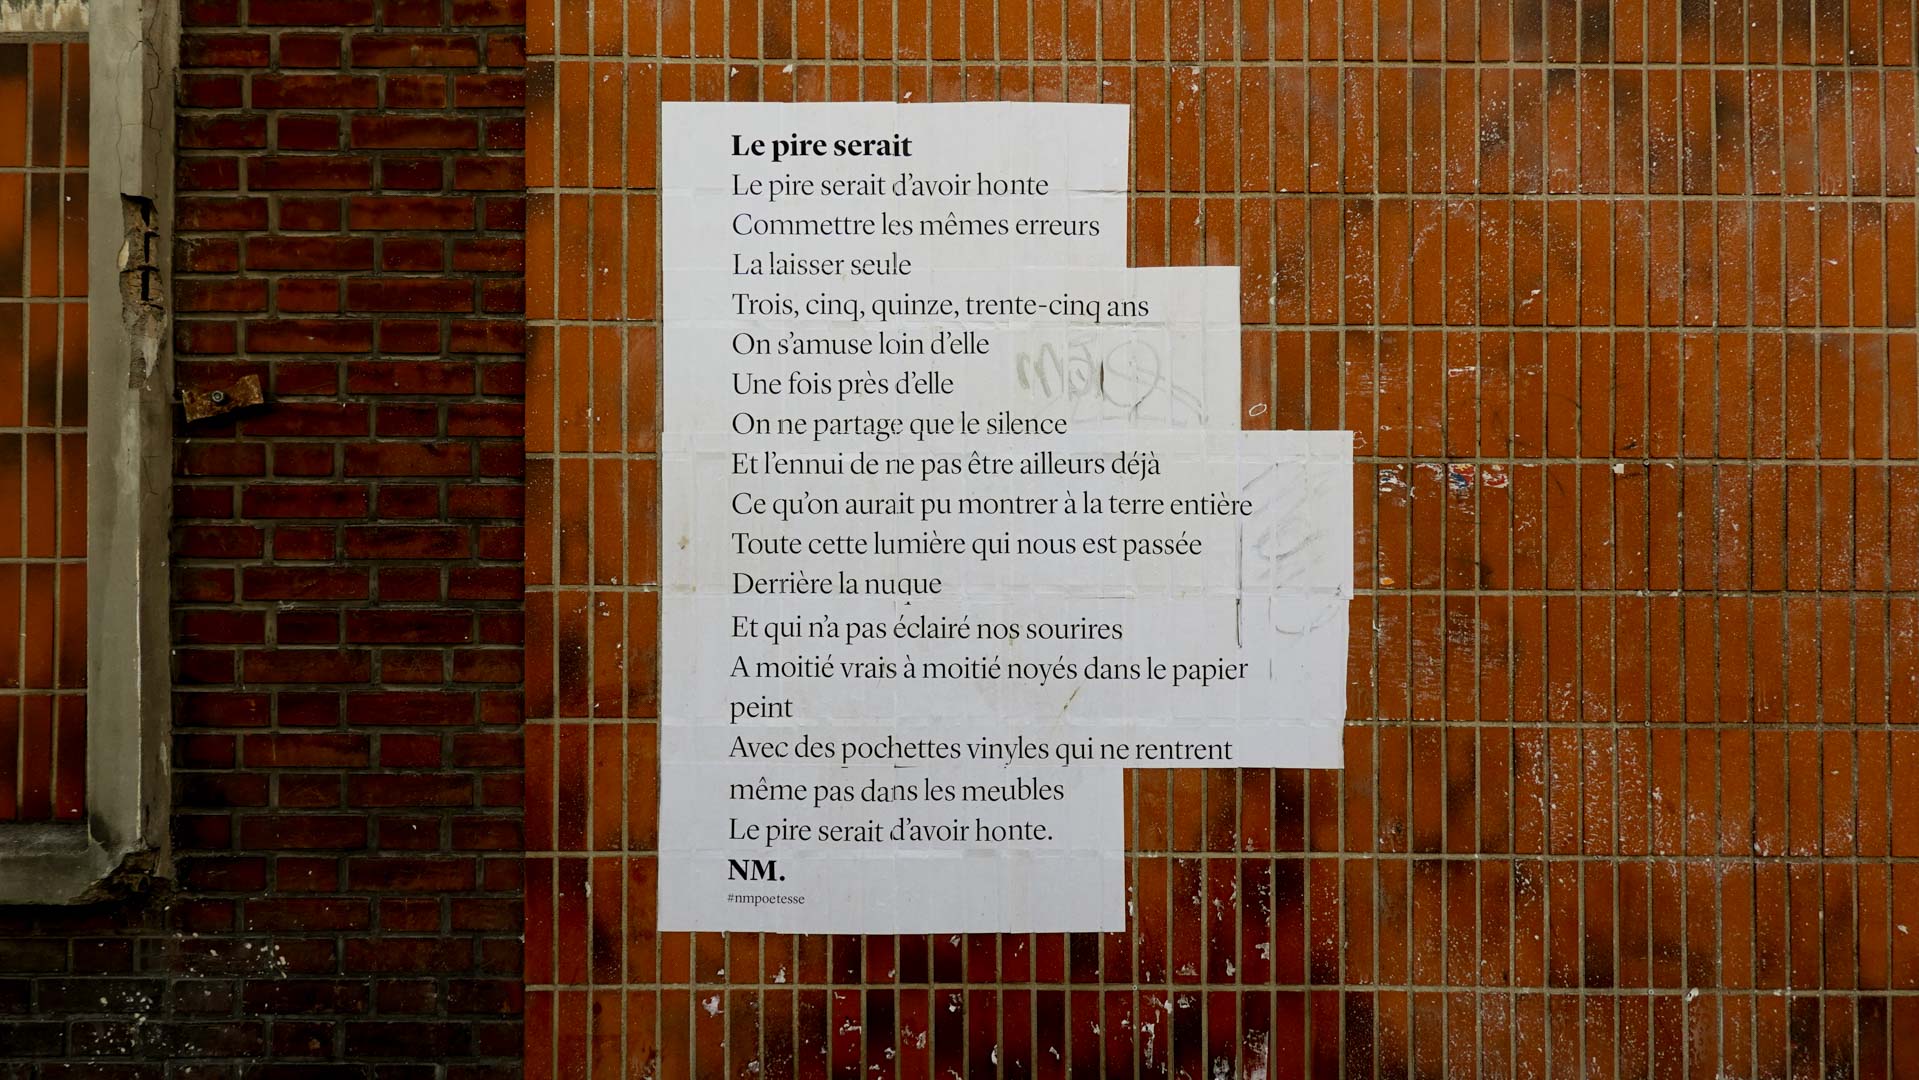 Le pire serait
Le pire serait d’avoir honte
Commettre les mêmes erreurs
La laisser seule
Trois, cinq, quinze, trente-cinq ans
On s’amuse loin d’elle
Une fois près d’elle
On ne partage que le silence
Et l’ennui de ne pas être ailleurs déjà
Ce qu’on aurait pu montrer à la terre entière
Toute cette lumière qui nous est passée
Derrière la nuque
Et qui n’a pas éclairé nos sourires
A moitié vrais à moitié noyés dans le papier
peint
Avec des pochettes vinyles qui ne rentrent
même pas dans les meubles
Le pire serait d’avoir honte.
NM.
#nmpoetesse